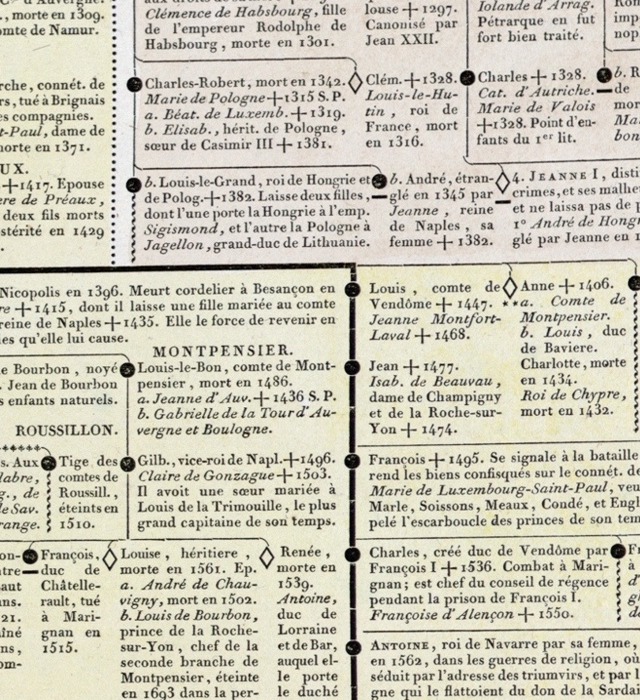 , morte en 1309.
omte de Namur.
Clémence de Habsbourg, fille
de l'empereur Rodolphe de
Habsbourg, morte en 1301.
louse + 1297.
Canonisé par
Jean XXII.
Iolande d'Arrag.
Pétrarque en fut
fort bien traité.
rche, connét. de
rs, tué à Brignais
es compagnies.
t-Paul, dame de
morte en 1371.
Charles-Robert, mort en 1342.
Marie de Pologne + 1315 S. P.
a. Béat. de Luxemb. + 1319.
b. Elisab., hérit. de Pologne,
sœur de Casimir III + 1381.
Clém. + 1328.
Louis-le-Hu-
tin, roi de
France, mort
en 1316.
Charles + 1328.
Cat. d'Autriche.
Marie de Valois
+ 1328. Point d'en-
fants du 1er lit.
UX.
+ 1417. Epouse
ère de Préaux,
deux fils morts
stérité en 1429
b. Louis-le-Grand, roi de Hongrie et
de Polog. + 1382. Laisse deux filles,
dont l'une porte la Hongrie à l'emp.
Sigismond, et l'autre la Pologne à
Jagellon, grand-duc de Lithuanie.
b. André, étran-
glé en 1345 par
Jeanne, reine
de Naples, sa
femme + 1382.
4. JEANNE I, disti
crimes, et ses malhe
et ne laissa pas de p
1° André de Hong
glé par Jeanne en 1
Nicopolis en 1396. Meurt cordelier à Besançon en
re + 1415, dont il laisse une fille mariée au comte
reine de Naples + 1435. Elle le force de revenir en
es qu'elle lui cause.
Louis, comte de
Vendôme + 1447.
Jeanne Montfort-
Laval + 1468.
Anne + 1406.
a. Comte de
Montpensier.
b. Louis, duc
de Baviere.
Charlotte, morte
en 1434.
Roi de Chypre,
mort en 1432.
MONTPENSIER.
e Bourbon, noyé
Jean de Bourbon
s enfants naturels.
Louis-le-Bon, comte de Mont-
pensier, mort en 1486.
a. Jeanne d'Auv. + 1436 S. P.
b. Gabrielle de la Tour d'Au-
vergne et Boulogne.
Jean + 1477.
Isab. de Beauvau,
dame de Champigny
et de la Roche-sur-
Yon + 1474.
ROUSSILLON.
s. Aux
labre,
g., de
le Sav.
range.
Tige des
comtes de
Roussill.,
éteints en
1510.
Gilb., vice-roi de Napl. + 1496.
Claire de Gonzague + 1503.
Il avoit une sœur mariée à
Louis de la Trimouille, le plus
grand capitaine de son temps.
François + 1495. Se signale à la bataille
rend les biens confisqués sur le connét. de
Marie de Luxembourg-Saint-Paul, veu
Marle, Soissons, Meaux, Condé, et Engl
pelé l'escarboucle des princes de son tem
François,
duc de
Châtelle-
rault, tué
à Mari-
gnan en
1515.
Louise, héritiere,
morte en 1561. Ep.
a. André de Chau-
vigny, mort en 1502.
b. Louis de Bourbon,
prince de la Roche-
sur-Yon, chef de la
seconde branche de
Montpensier, éteinte
en 1693 dans la per-
Renée,
morte en
1539.
Antoine,
duc de
Lorraine
et de Bar,
auquel el-
le porte
le duché
Charles, créé duc de Vendôme par
François I + 1536. Combat à Mari-
gnan; est chef du conseil de régence
pendant la prison de François I.
Françoise d'Alençon + 1550.
ANTOINE, roi de Navarre par sa femme,
en 1562, dans les guerres de religion, où
séduit par l'adresse des triumvirs, et par l
gne qui le flattoient du don de la Sardai